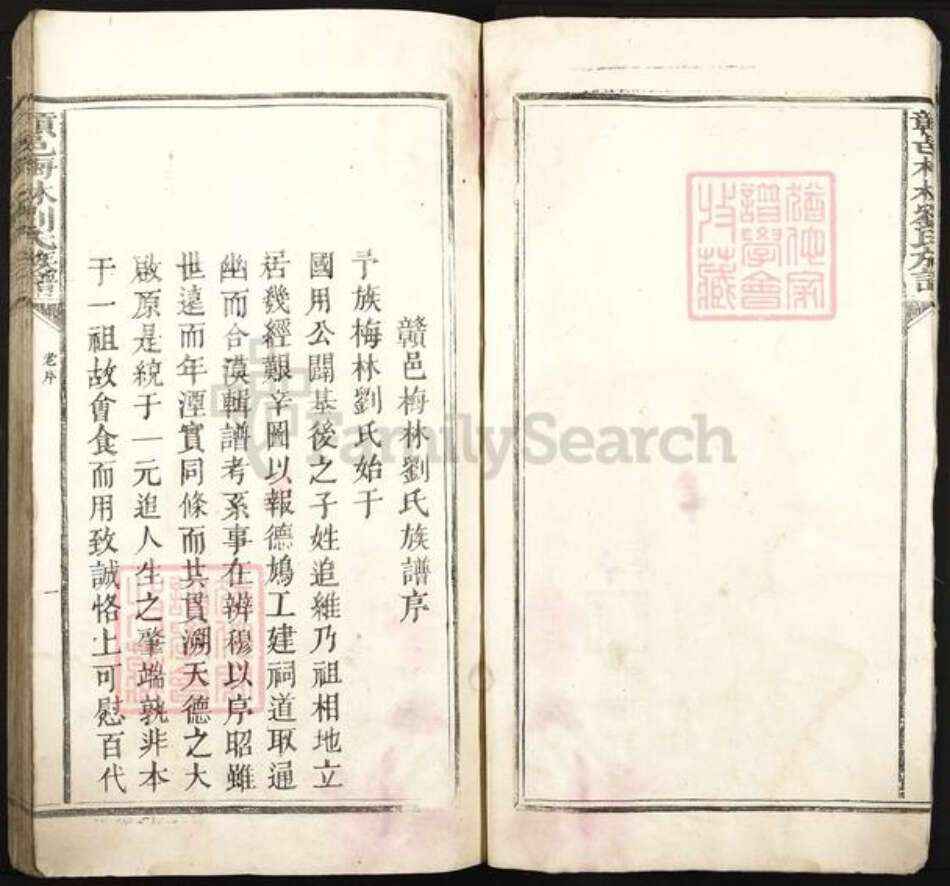 贛邑梅林劉氏族譜序
予族梅林劉氏始于
國用公闢基後之子姓追維乃祖相地立
居幾經艱辛圖以報德鳩工建祠道取通
幽而合漠輯譜考系事在辨穆以序昭雖
世遠而年湮實同條而共貫溯天德之大
啟原是統于一元追人生之肇端孰非本
于一祖故會食而用致誠恪上可慰百代
老序
一
劉氏族譜
猶他家
譜學會
收藏
FamilySearch